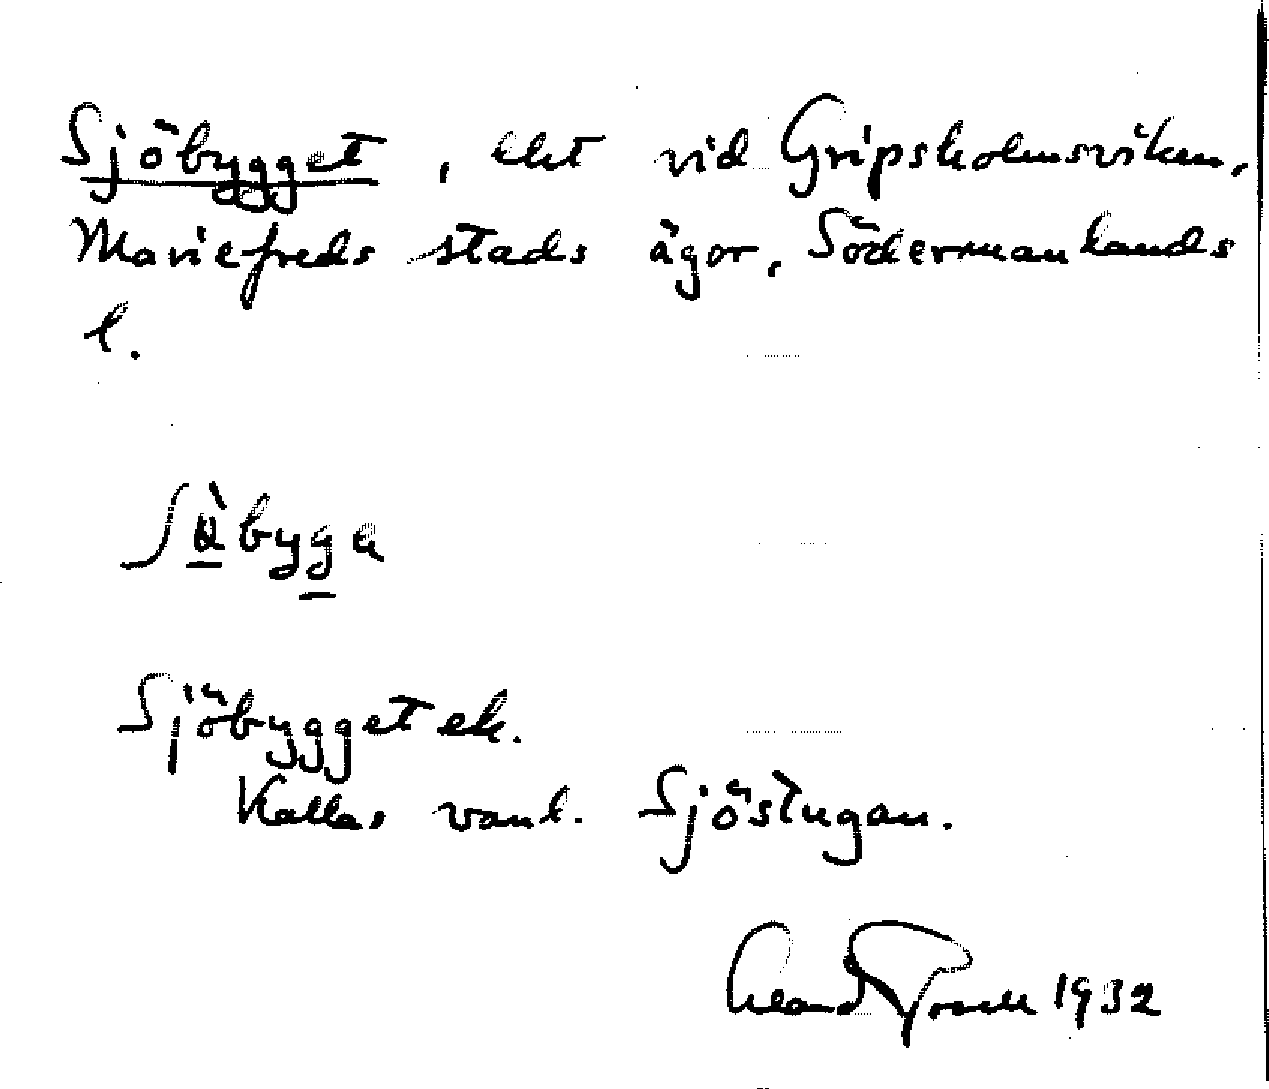 Sjöbygget, lht vid Gripsholmsviken,
Mariefreds stads ägor, Södermanlands
l.
Sjöbygget ek.
Kallas vanl. Sjöstugan.
1932